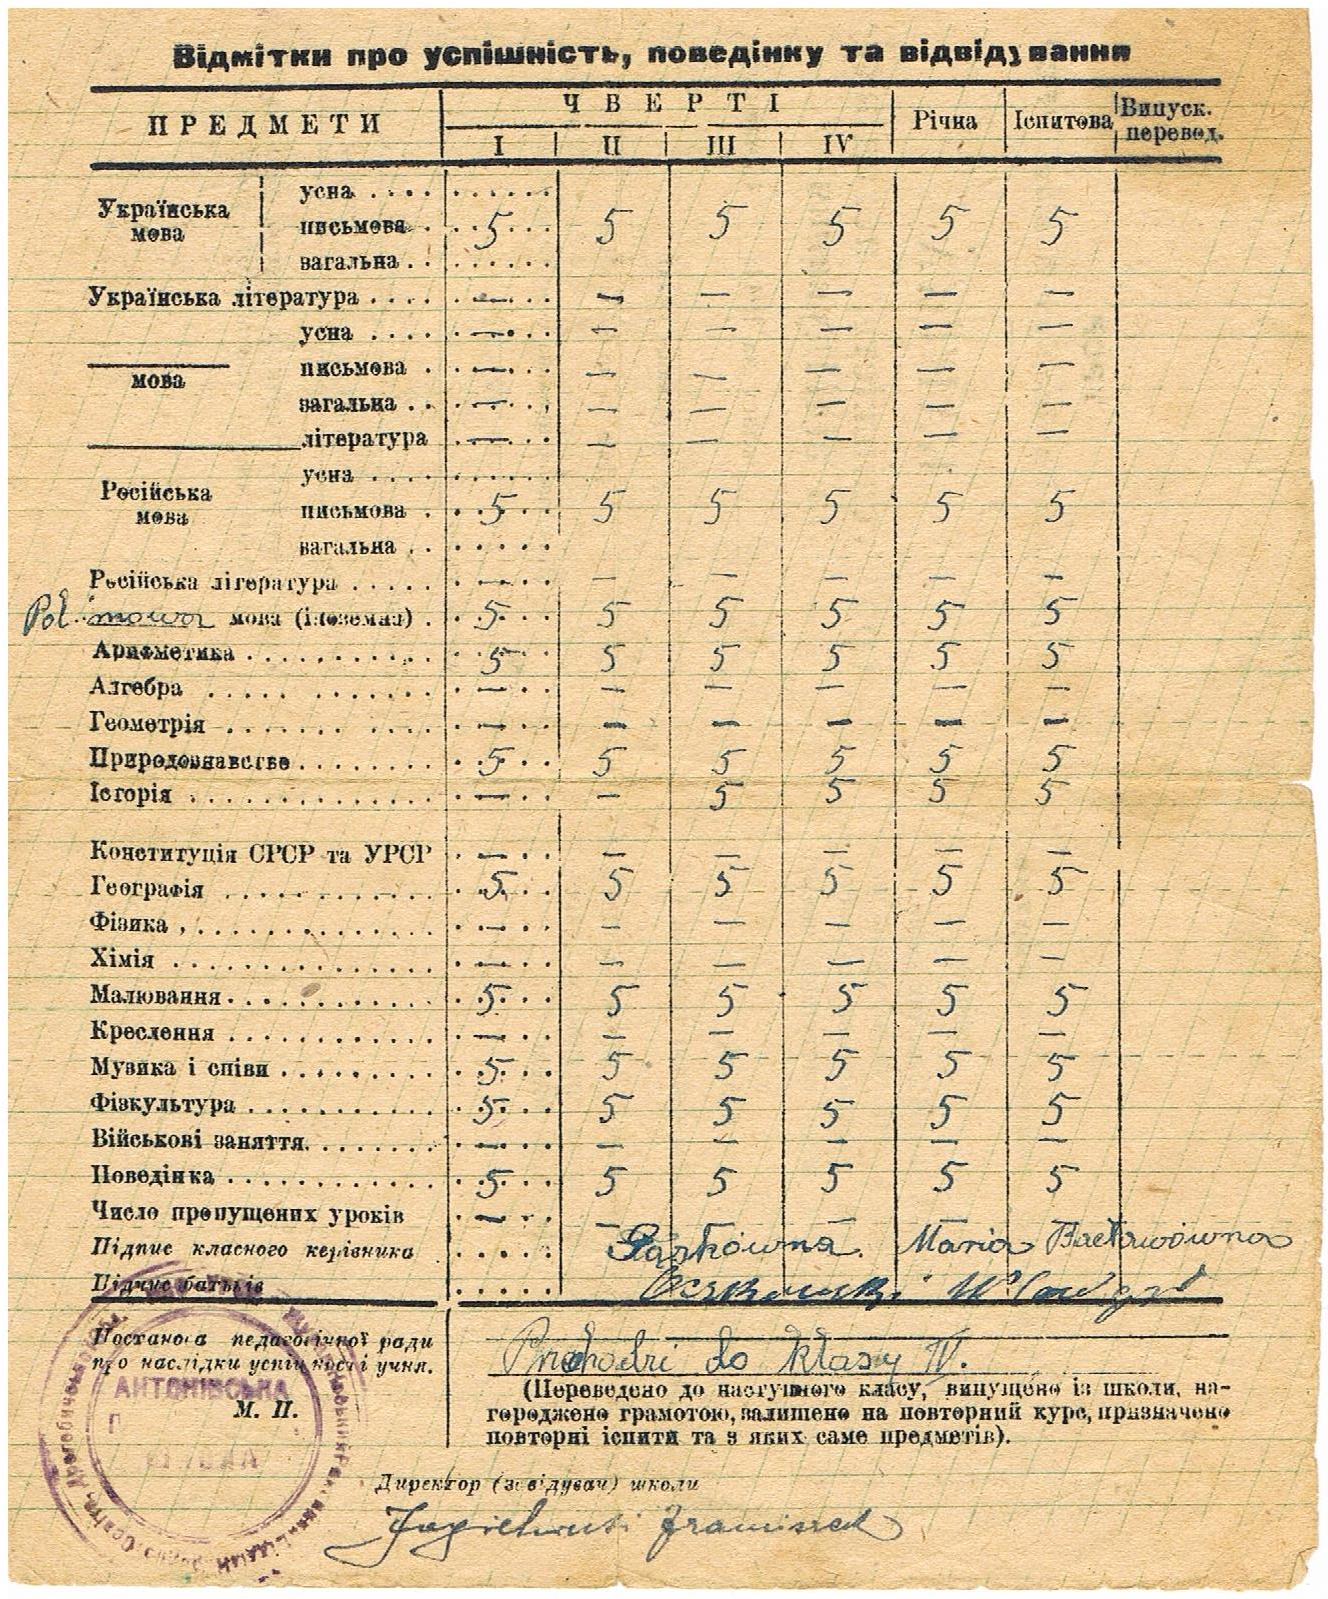 Відмітки про успішність, поведінку та відвідування
ПРЕДМЕТИ ЧВЕРТІ Річна Іспитова Випуск. перевод.
I II III IV
Українська мова усна
письмова 5 5 5 5 5 5
загальна
Українська література — — — — — —
усна — — — — — —
мова письмова — — — — — —
загальна — — — — — —
література — — — — — —
Російська мова усна
письмова 5 5 5 5 5 5
загальна
Російська література — — — — — —
Pol. mowa мова (іноземна) 5 5 5 5 5 5
Арифметика 5 5 5 5 5 5
Алгебра — — — — — —
Геометрія — — — — — —
Природознавство 5 5 5 5 5 5
Історія — — 5 5 5 5
Конституція СРСР та УРСР — — — — — —
Географія 5 5 5 5 5 5
Фізика — — — — — —
Хімія — — — — — —
Малювання 5 5 5 5 5 5
Креслення — — — — — —
Музика і співи 5 5 5 5 5 5
Фізкультура 5 5 5 5 5 5
Військові заняття — — — — — —
Поведінка 5 5 5 5 5 5
Число пропущених уроків — — — — —
Підпис класного керівника Maria
Підпис батьків
Постанова педагогічної ради
про наслідки успішності учня.
Przchodzi do klasy IV.
(Переведено до наступного класу, випущено із школи, на-
городжено грамотою, залишено на повторний курс, призначено
повторні іспити та з яких саме предметів).
АНТОНІВСЬКА
М. П.
Директор (завідувач) школи
Franciszek